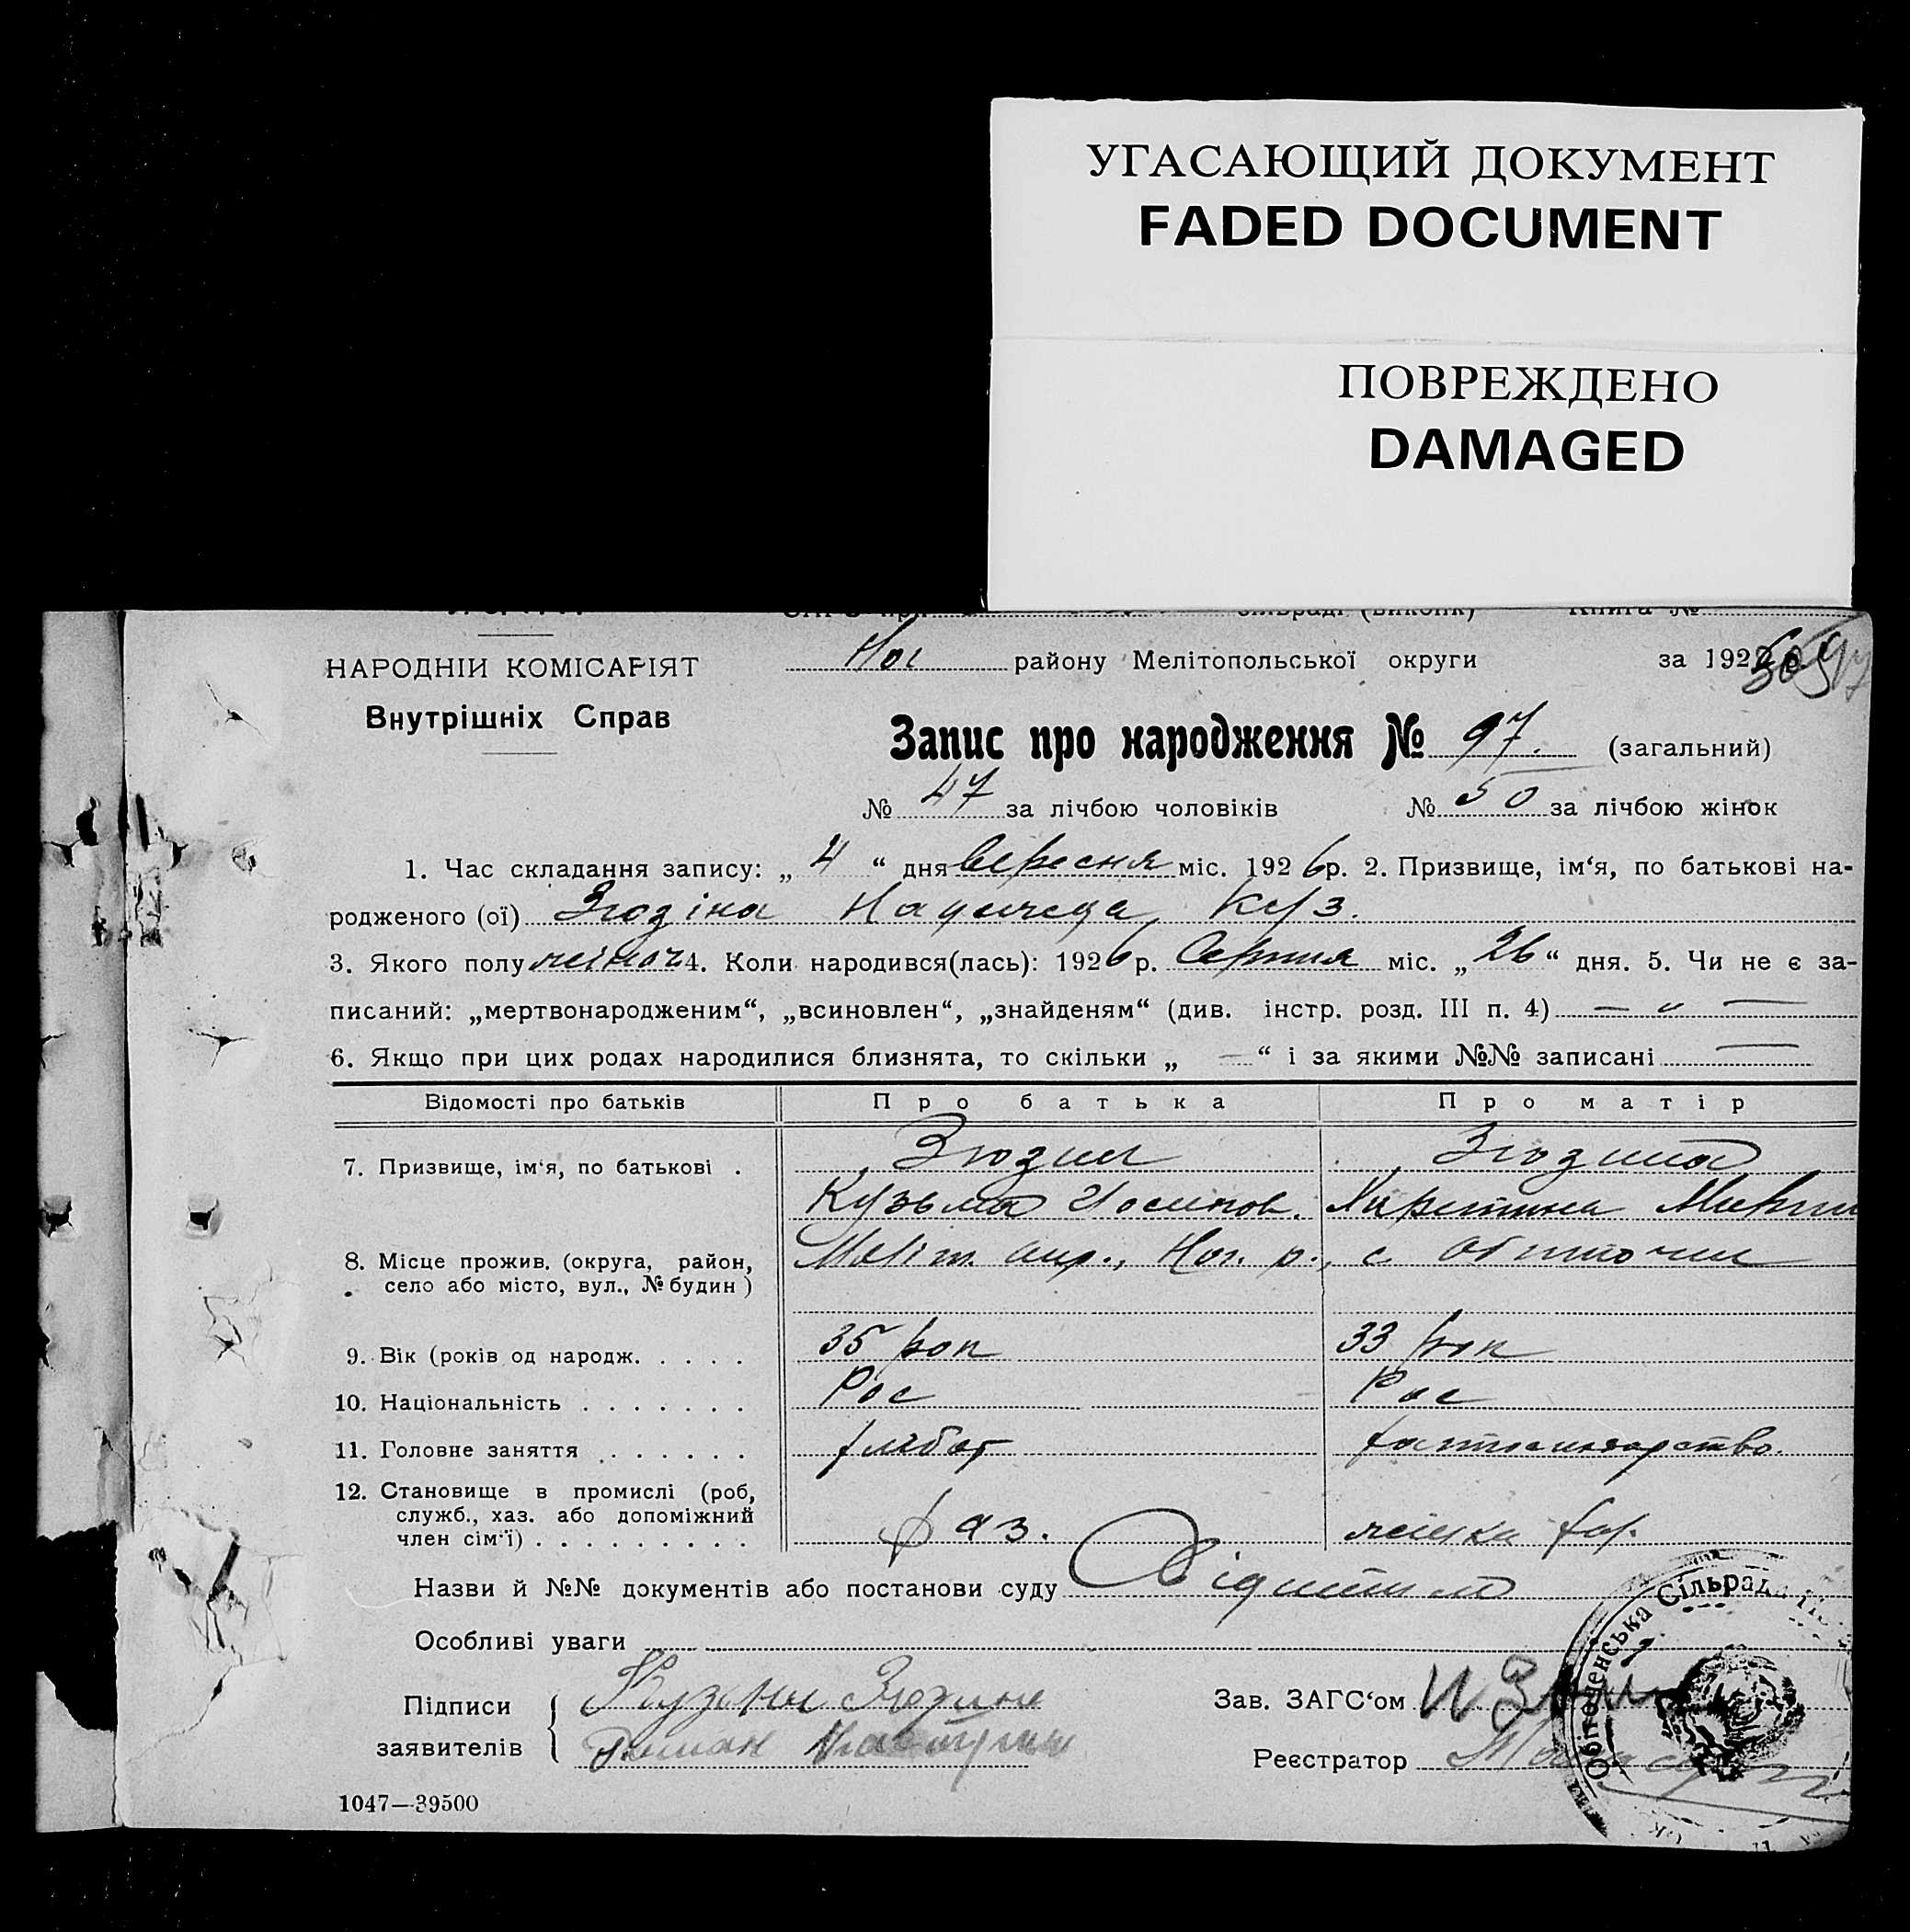 УГАСАЮЩИЙ ДОКУМЕНТ
FADED DOCUMENT
ПОВРЕЖДЕНО
DAMAGED
Книга №
НАРОДНІЙ КОМІСАРІЯТ
Внутрішніх Справ
Ног району Мелітопольської округи за 1926
Запис про народження № 97. (загальний)
№ 47 за лічбою чоловіків № 50 за лічбою жінок
1. Час складання запису: „ 4 “ дня Вересня міс. 1926 р. 2. Призвище, ім‘я, по батькові на-
родженого (ої) Зюзіна Куз.
3. Якого полу жіноч 4. Коли народився(лась): 1926 р. Серпня міс. „ 26 “ дня. 5. Чи не є за-
писаний: „мертвонародженим“, „всиновлен“, „знайденям“ (див. інстр. розд. III п. 4) — „ —
6. Якщо при цих родах народилися близнята, то скільки „ — “ і за якими №№ записані —
Відомості про батьків Про батька Про матір
7. Призвище, ім‘я, по батькові . Зюзин Зюзина
Кузьма Иосипов.
8. Місце прожив. (округа, район, Меліт. окр., Ног. р., с Обіточни
село або місто, вул., № будин )
9. Вік (років од народж. . . . . 35 рок 33 рок
10. Національність . . . . . . . Рос Рос
11. Головне заняття . . . . . . хлібор
12. Становище в промислі (роб,
служб., хаз. або допоміжний
член сім‘ї) . . . . . . . . . хаз. жінка хаз.
Назви й №№ документів або постанови суду
Особливі уваги
Підписи
заявителів
Зав. ЗАГС‘ом
Реєстратор
Обіточенська Сільрада
1047—39500